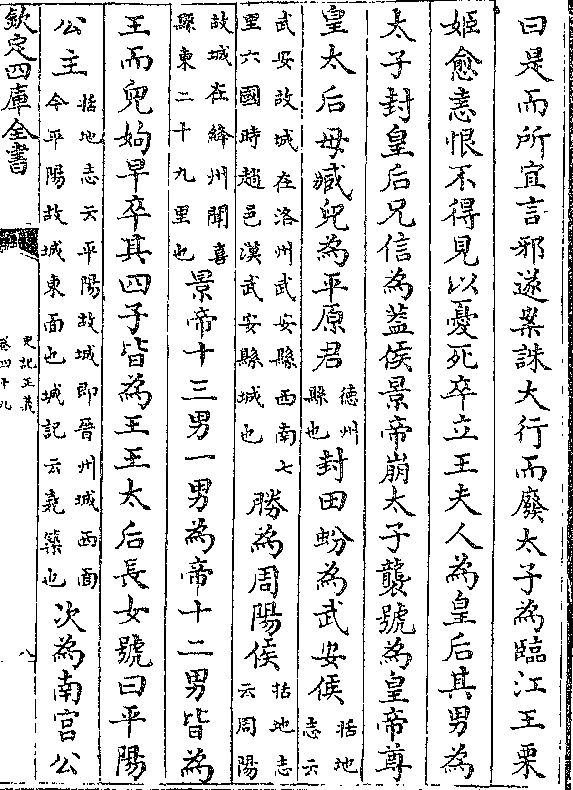 曰是而所宜言邪遂案誅大行而廢太子為臨江王栗
姬愈恚恨不得見以憂死卒立王夫人為皇后其男為
太子封皇后兄信為蓋侯景帝崩太子襲號為皇帝尊
皇太后母臧兒為平原君德州縣也封田蚡為武安侯括地志云
武安故城在洛州武安縣西南七里六國時趙邑漢武安縣城也勝為周陽侯括地志云周陽
故城在絳州聞喜縣東二十九里也景帝十三男一男為帝十二男皆為
王而兒姁早卒其四子皆為王王太后長女號曰平陽
公主括地志云平陽故城即晉州城西面今平陽故城東面也城記云堯築也次為南宮公
欽定四庫全書
史記正義
卷四十九
八